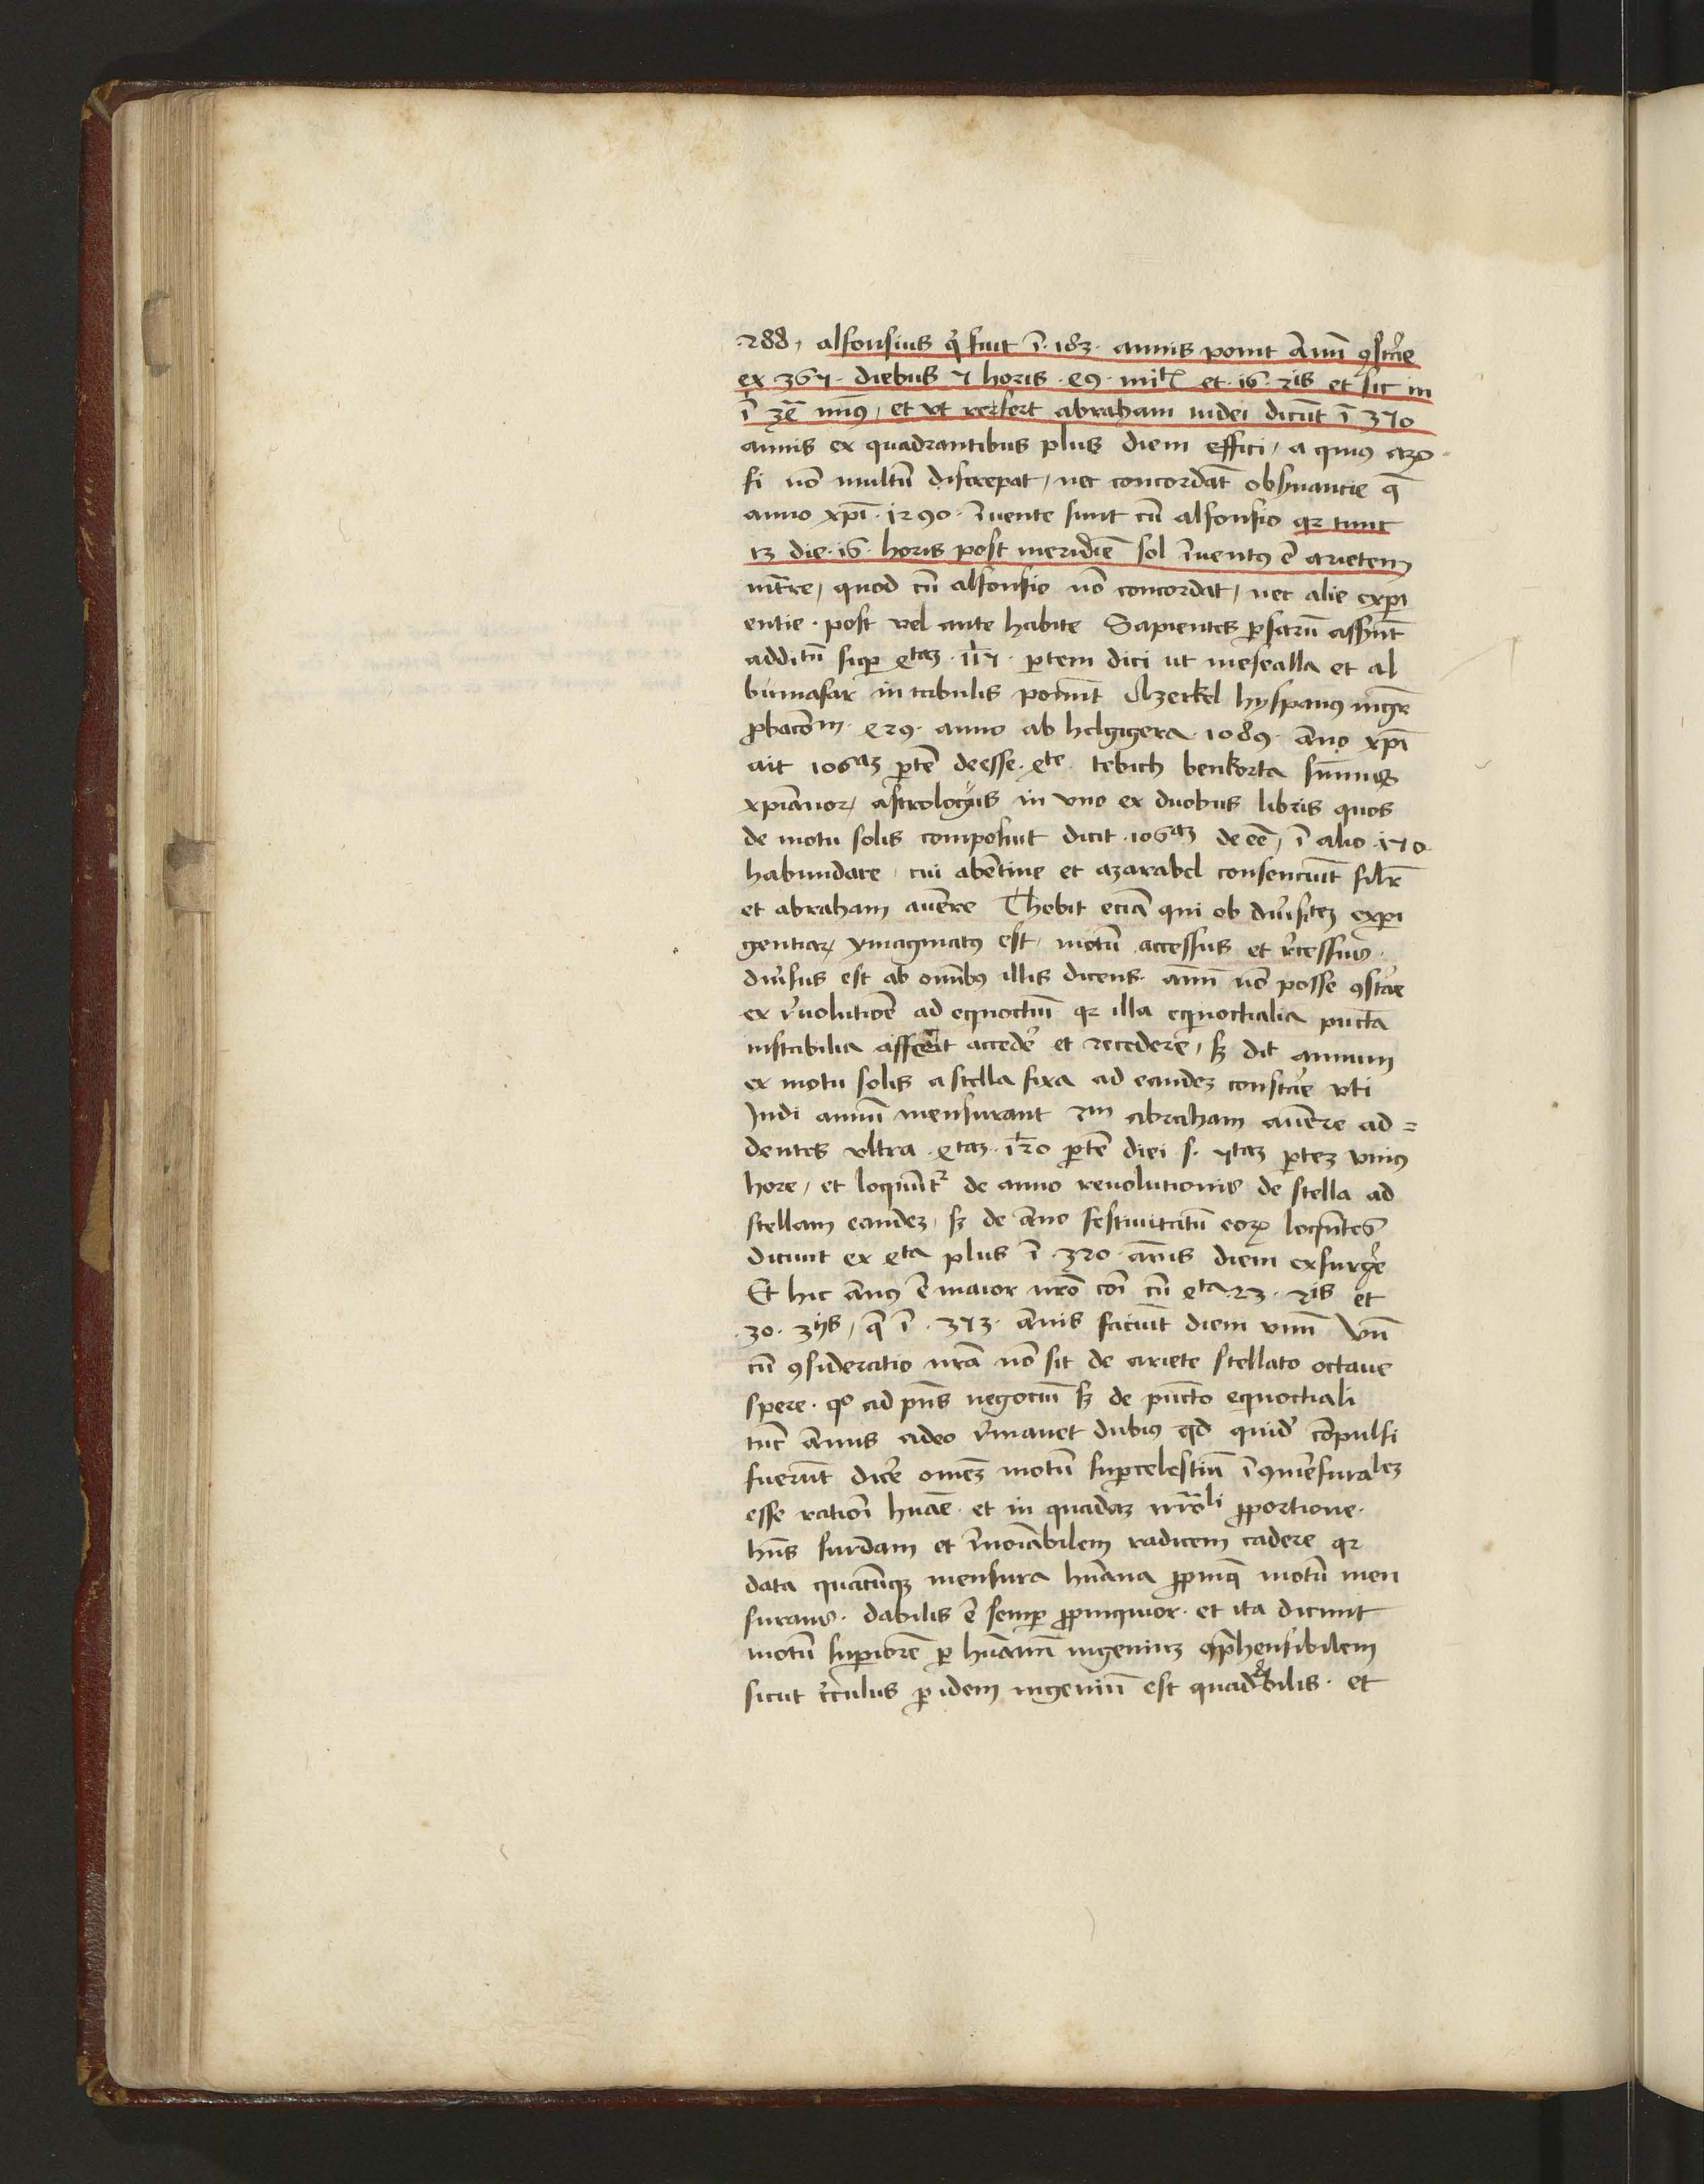 .288, alfonsius qͥ fuit ī .183. annis ponit Annū ꝯstāre
ex 365. diebus 5 horis .49. mīt et .16. 2is et sic in
ī et ut refert abraham iudei dicūt ī 370
annis ex quadrantibus plus diem effici, a quiꝰ arȝo
fi nō multū discrepat, nec concordāt obsͥuancie q̄
anno xp̄i .1290. īuente sunt cū alfonsio qꝛ tunc
13 die .16. horis post meridiē sol īuentꝰ ē arietem
īt̄re, quod cū alfonsio nō concordat, nec alie exp̱i
entie . post vel ante habite Sapientes ꝑsarū assͥut
additū suꝑ 4taȝ .115. ꝑtem diei ut mesealla et al
bumasar in tabulis ponūt Arzerkel hyspanꝰ
ꝓbacōm . 429. anno ab helgigera .1089. āno xp̄i
ait 106aȝ ꝑtē deesse .4te. tebich benkorta sūmus
xpiānoꝝ astrologus in vno ex duobus libris quos
de motu solis composuit dicit .106aȝ de eē, ī alio .150.
habundare, cui abētine et azarabel consenciūt sil̄r
et abraham auēre Thebit eciā qui ob diūsitēȝ exp̱i
genciaꝝ ymaginatꝰ est, motū accessus et rͣcessus.
diūsus est ab omībꝰ illis dicens . annū nō posse ꝯstare
ex rͤuolutiōe ad equoctiū qꝛ illa equinoctialia pūcta
instabilia asserit accedere et recedere, sȝ dīt annum
ex motu solis a stella fixa ad eandeȝ constāre vti
Indi annū mensurant 2m abraham auēre ad=
dentes vltra .4taȝ .120 ꝑtē diei s. 5taȝ ꝑteȝ vniꝰ
hore, et loquūtꝛ de anno reuolutionis de stella ad
stellam eandeȝ, sȝ de āno festiuitatū eoꝝ loqūtes
dicunt ex 4ta plus ī .320. annis diem exsurgͤe
Et hic ānꝰ ē maior nr̄o cōi cū 4ta .23. 2is et
.30. 3ijs, q̄ ī .373. annis faciūt diem vnū Vn̄
cū ꝯsideratio nr̄a nō sit de ariete stellato octaue
spere . qͦ ad pn̄s negociū sȝ de pūcto equoctiali
tūc annus adeo rͤmanet dubiꝰ qd quidͣ cōpulsi
fuerūt dicͤe omēȝ motū suꝑcelestiū īꝯmēsuraleȝ
esse ratiōi hūāe . et in quadaȝ ꝓportione .
hn̄s surdam et īnoīabilem radicem cadere qꝛ
data quacūqȝ mensura hūana ꝓpinq̄ motū men
surans . dabilis ē semꝑ ꝓpinquior . et ita dicunt
motū suꝑiorē ꝑ hūanū ingeniuȝ ꝯp̄hensibilem
sicut cͥculus ꝑ idem ingeniū est quadrabilis . et